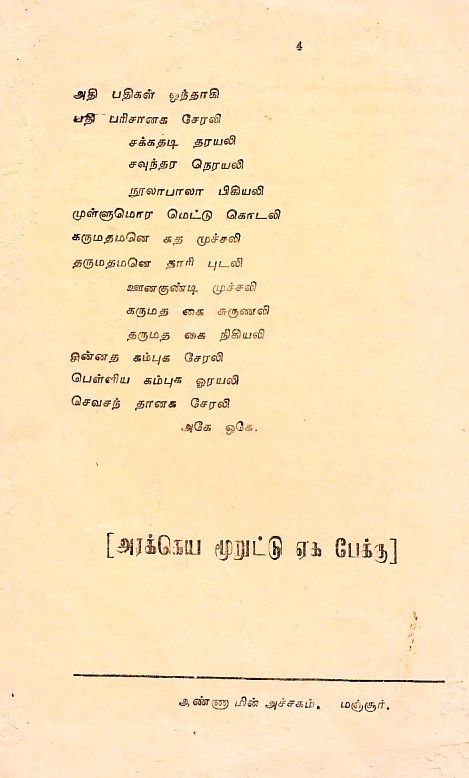 4
அதி பதிகள் ஒந்தாகி
பதி பரிசானக சேரலி
சக்கதடி தரயலி
சவுந்தர நெரயலி
நூலாபாலா பிகியலி
முள்ளுமொர மெட்டு கொடலி
கருமதமனெ கத முச்சலி
தருமதமனெ தாரி புடலி
ஊனகுண்டி முச்சலி
கருமத கை சுருணலி
தருமத கை நிகியலி
ஜின்னத கம்புக சேரலி
பெள்ளிய கம்புக ஓரயலி
செவசந் தானக சேரலி
அகே ஒகே.
[அரக்கெய மூறுட்டு ஏக பேக்கு]
அண்ணாமின் அச்சகம். மஞ்சூர்.